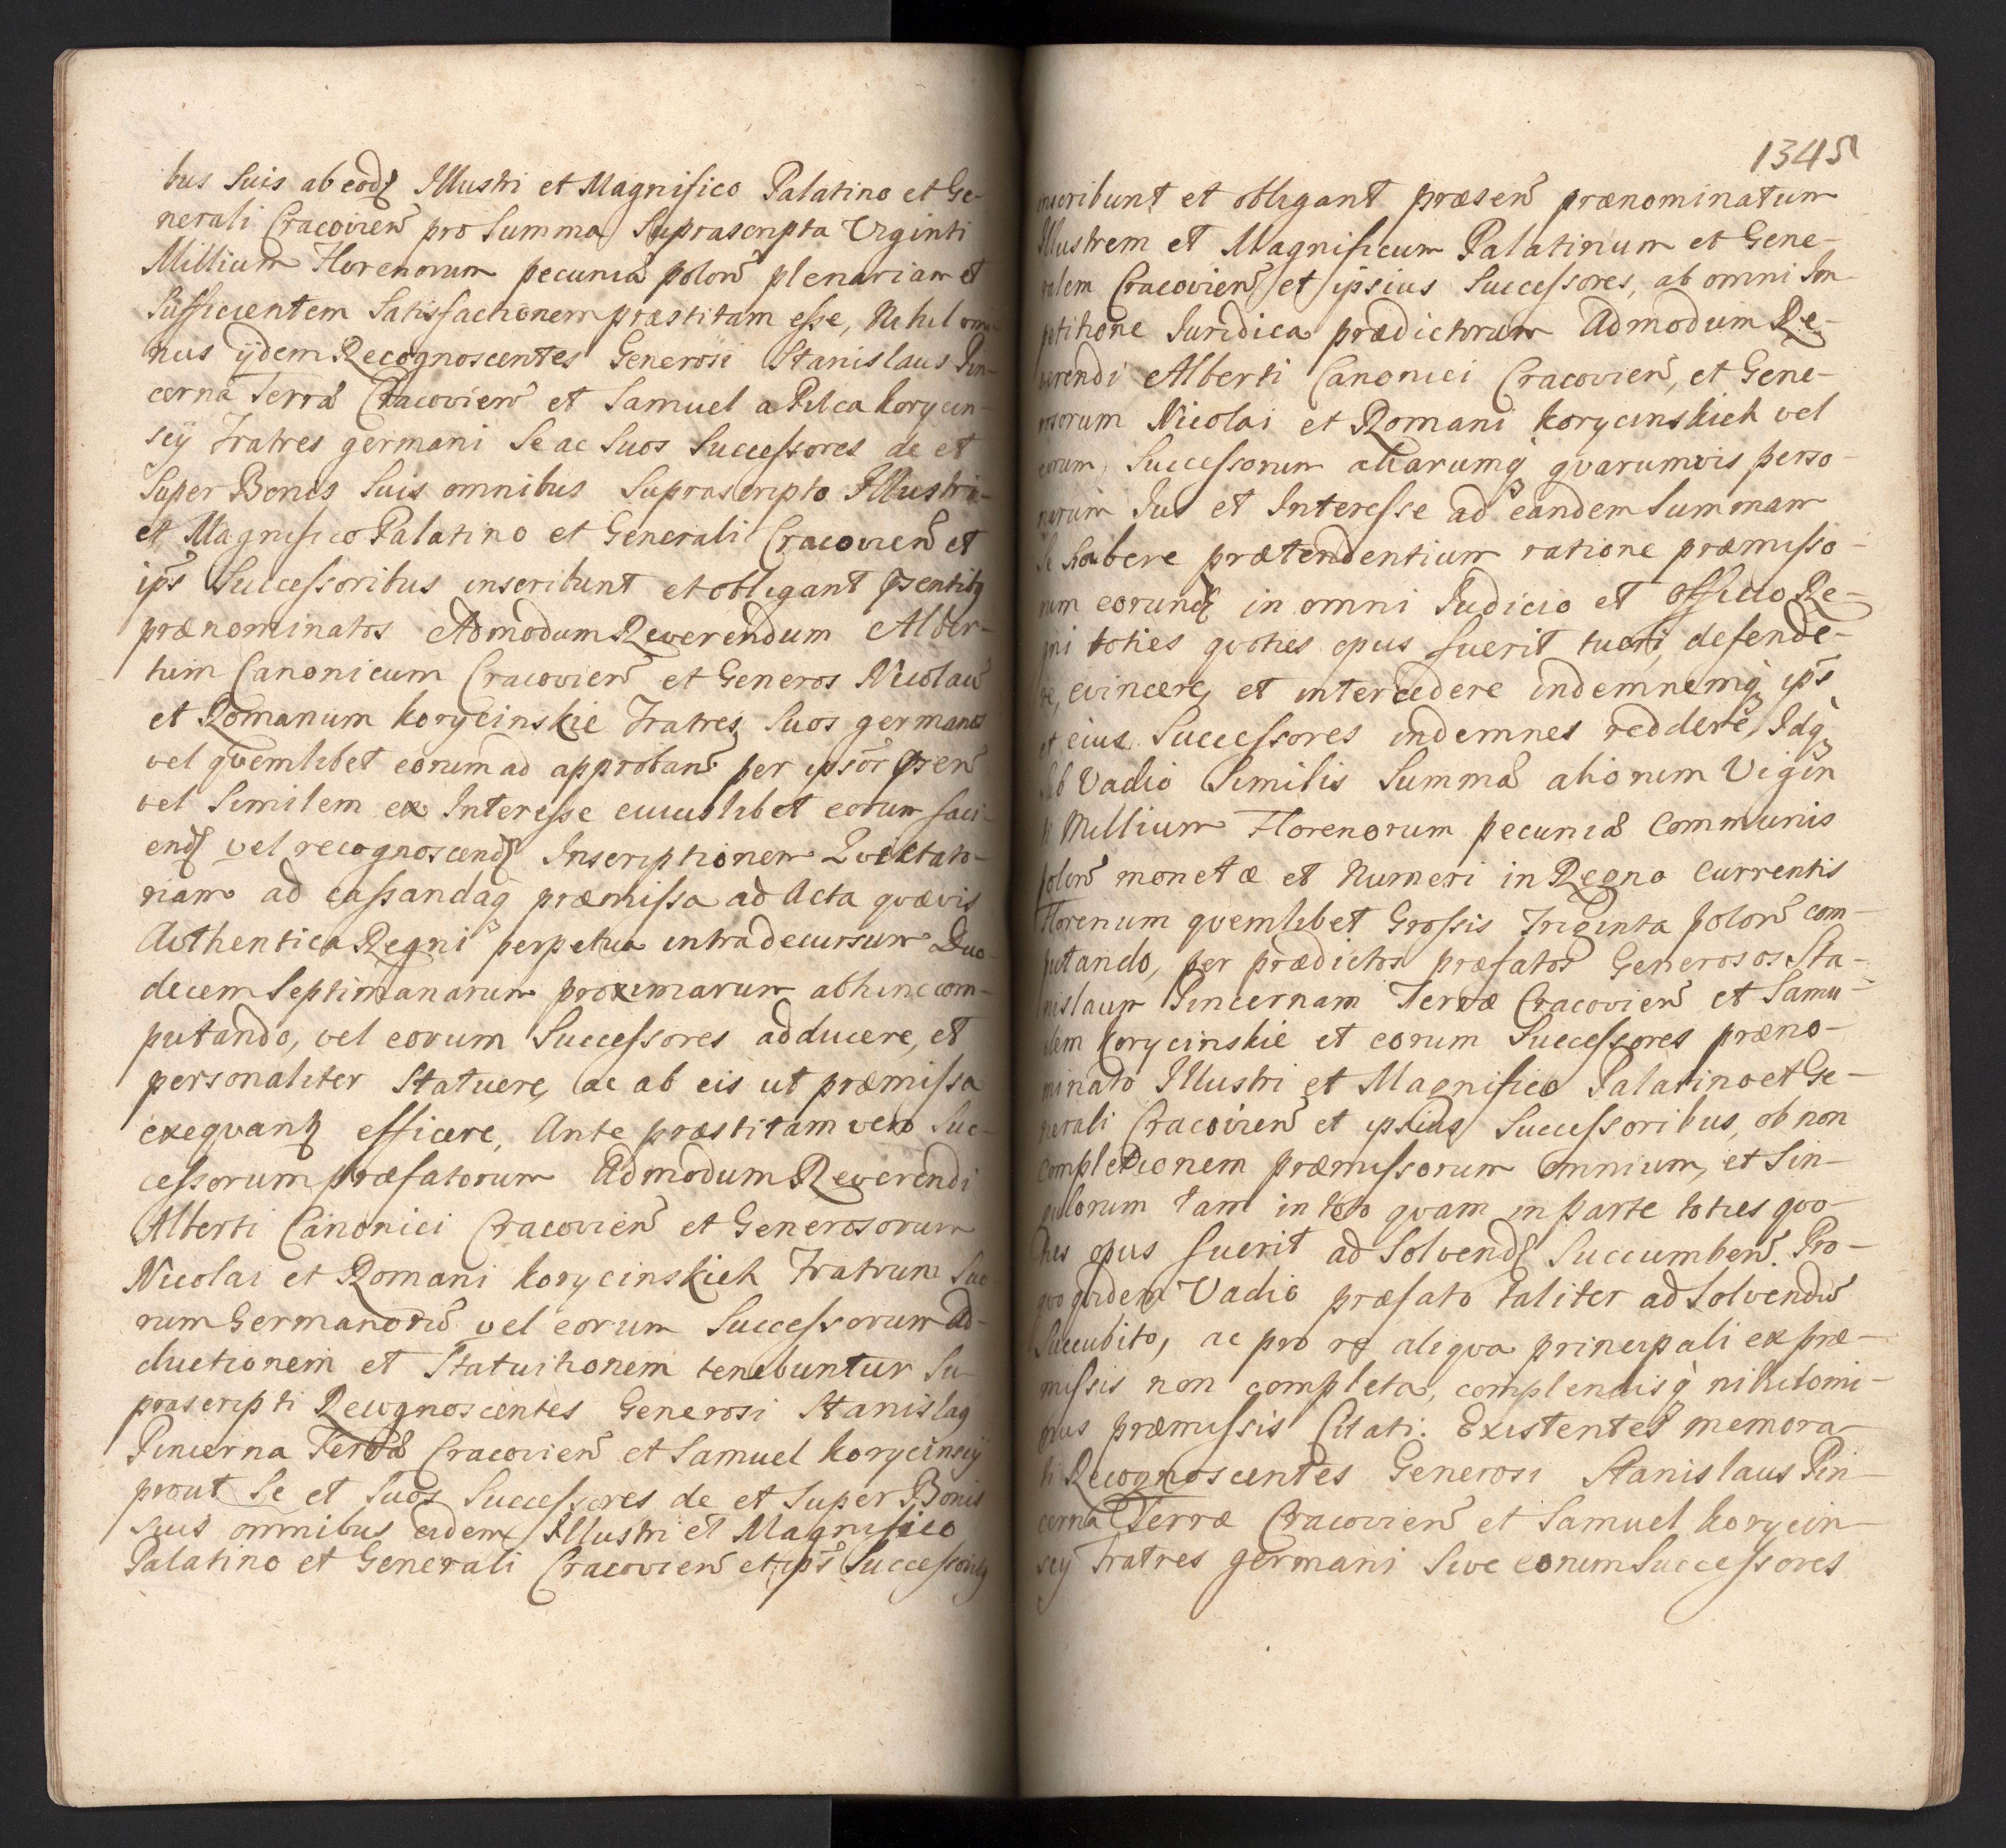 bus Suis ab eodꝫ Illustri et Magnifico Palatino et Ge-
nerali Cracovien̄ pro Summa Suprascripta Viginti
Millium Florenorum pecuniæ polon̄ plenariam et
Sufficientem Satisfactionem præstitam esse, Nihilomi-
nus ijdem Recognoscentes Generosi Stanislaus Pin-
cerna Terræ Cracovien̄ et Samuel a Pilca Korycin-
scij Fratres germani Se ac Suos Successores de et
Super Bonis Suis omnibus Suprascripto Illustri
et Magnifico Palatino et Generali Cracovien̄ et
ip̄s Successoribus inscribunt et obligant pꝛsentibꝫ
prænominatos Admodum Reverendum Alber-
tum Canonicum Cracovien̄ et Generos Nicolau̅
et Romanum Korycinskie Fratres Suos germanos
vel qvemlibet eorum ad approban̄ per ipsor̄ pꝛsen̄
vel Similem ex Interesse cuiuslibet eorum faci-
endꝫ vel recognoscendꝫ Inscriptionem Qvietato-
riam ad cassandaqꝫ præmissa ad Acta qvævis
Avthentica Regni perpetua intra decursum Duo-
decem Septimanarum proximarum abhinc com-
putando, vel eorum Successores adducere, et
personaliter Statuere, ac ab eis ut præmissa
exeqvantꝫ efficere, Ante præstitam vero Suc-
cessorum præfatorum Admodum Reverendi
Alberti Canonici Cracovien̄ et Generosorum
Nicolai et Romani Korycinskich Fratrum Suo-
rum Germanoru̅ vel eorum Successorum Ad-
ductionem et Statuitionem tenebuntur Su-
prascripti Recognoscentes Generosi Stanislaꝫ
Pincerna Terræ Cracovien̄ et Samuel Korycinscij
prout Se et Suos Successores de et Super Bonis
Suis omnibus eidem Illustri et Magnifico
Palatino et Generali Cracovien̄ et ip̄s Successoribꝫ
1345
inscribunt et obligant præsen̄ prænominatum
Illustrem et Magnificum Palatinum et Gene-
ralem Cracovien̄ et ipsius Successores, ab omni Im-
petitione Iuridica prædictorum Admodum Re-
verendi Alberti Canonici Cracovien̄, et Gene-
rosorum Nicolai et Romani Korycinskich vel
eorum Successorum aliarumqꝫ qvarumvis perso-
narum Ius et Interesse ad eandem Summam
Se habere prætendentium ratione præmisso-
rum eorundꝫ in omni Iudicio et Officio Re-
gni toties qvoties opus fuerit tueri, defende-
re, evincere, et intercedere indemnemqꝫ ip̄s
et eius Successores indemnes reddere, Idqꝫ
Sub Vadio Similis Summæ aliorum Vigin
ti Millium Florenorum pecuniæ Communis
polon̄ monetæ et Numeri in Regno Currentis
Florenum qvemlibet Grossis Triginta polon̄ com-
putando, per prædictos præfatos Generosos Sta-
nislaum Pincernam Terræ Cracovien̄ et Samu-
elem Korycinskie et eorum Successores præno-
minato Illustri et Magnifico Palatino et Ge-
nerali Cracovien̄ et ipsius Successoribus, ob non
Completionem præmissorum omnium, et Sin-
gulorum tam in toto qvam in parte toties qvo-
ties opus fuerit ad Solvendꝫ Succumben̄. Pro-
qvo qvidem Vadio præfato taliter ad Solvendu̅
Succubito, ac pro re aliqva principali ex præ-
missis non completa, complendisqꝫ nihilomi-
nus præmissis Citati. Existentes memora-
ti Recognoscentes Generosi Stanislaus Pin
cerna Terræ Cracovien̄ et Samuel Korycin-
scij Fratres germani Sive eorum Successores